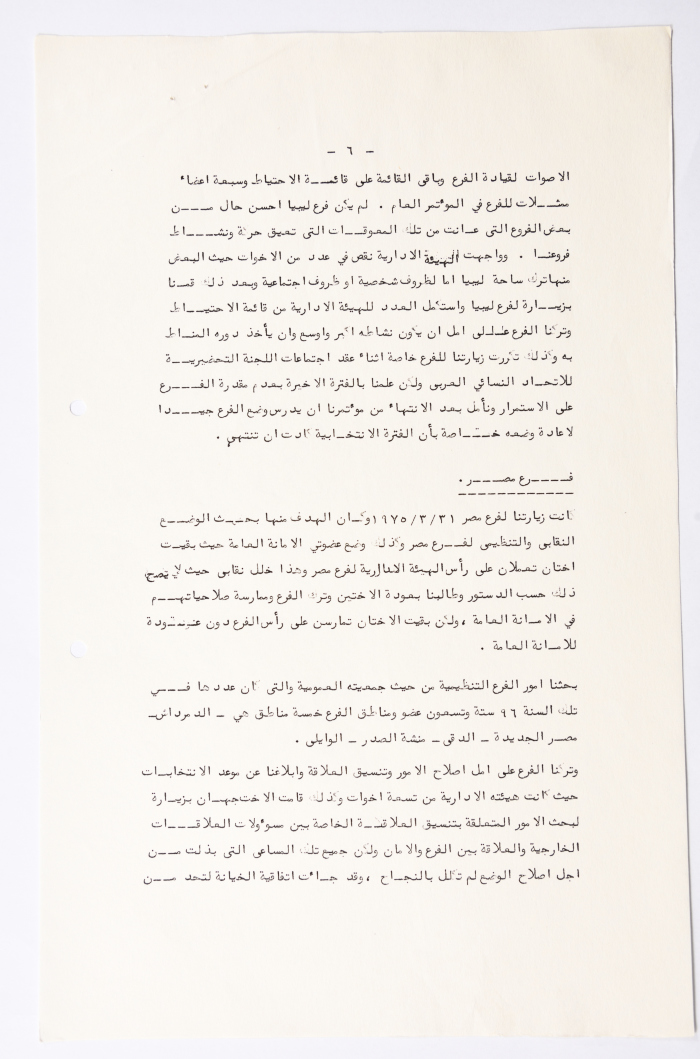 - ٦ -
الاصوات لقيادة الفرع وباقى القائمة على قائمة الاحتياط وسبعة اعضاء
ممثلات للفرع في المؤتمر العام . لم يكن فرع ليبيا احسن حال من
بعض الفروع التى عانت من تلك المعوقات التى تعيق حركة ونشاط
فروعنا . وواجهت الهيئة الادارية نقص في عدد من الاخوات حيث البعض
منها ترك ساحة ليبيا اما لظروف شخصية او ظروف اجتماعية وبعد ذلك قمنا
بزيارة لفرع ليبيا واستكمل العدد للهيئة الادارية من قائمة الاحتياط
وتركنا الفرع على امل ان يكون نشاطه اكبر واوسع وان يأخذ دوره المناط
به وكذلك تكررت زيارتنا للفرع خاصة اثناء عقد اجتماعات اللجنة التحضيرية
للاتحاد النسائي العربى ولكن علمنا بالفترة الاخيرة بعدم مقدرة الفرع
على الاستمرار ونأمل بعد الانتهاء من مؤتمرنا ان يدرس وضع الفرع جيدا
لاعادة وضعه خاصة بأن الفترة الانتخابية كادت ان تنتهي .
فرع مصر .
كانت زيارتنا لفرع مصر ١٩٧٥/٣/٣١ وكان الهدف منها بحث الوضع
النقابى والتنظيمى لفرع مصر وكذلك وضع عضوتي الامانة العامة حيث بقيت
اختان تعملان على رأس الهيئة الادارية لفرع مصر وهذا خلل نقابى حيث لا يصح
ذلك حسب الدستور وطالبنا بعودة الاختين وترك الفرع وممارسة صلاحياتهم
في الامانة العامة ، ولكن بقيت الاختان تمارسن على رأس الفرع دون عودة
للامانة العامة .
بحثنا امور الفرع التنظيمية من حيث جمعيته العمومية والتى كان عددها في
تلك السنة ٩٦ ستة وتسعون عضو ومناطق الفرع خمسة مناطق هي - الدمرداش -
مصر الجديدة - الدقى - منشة الصدر - الوايلى .
وتركنا الفرع على امل اصلاح الامور وتنسيق العلاقة وابلاغنا عن موعد الانتخابات
حيث كانت هيئته الادارية من تسعة اخوات وكذلك قامت الاخت جهان بزيارة
لبحث الامور المتعلقة بتنسيق العلاقة الخاصة بين مسؤولات العلاقات
الخارجية والعلاقة بين الفرع والامان ولكن جميع تلك المساعى التى بذلت من
اجل اصلاح الوضع لم تكلل بالنجاح ، وقد جاءت اتفاقية الخيانة لتحد من